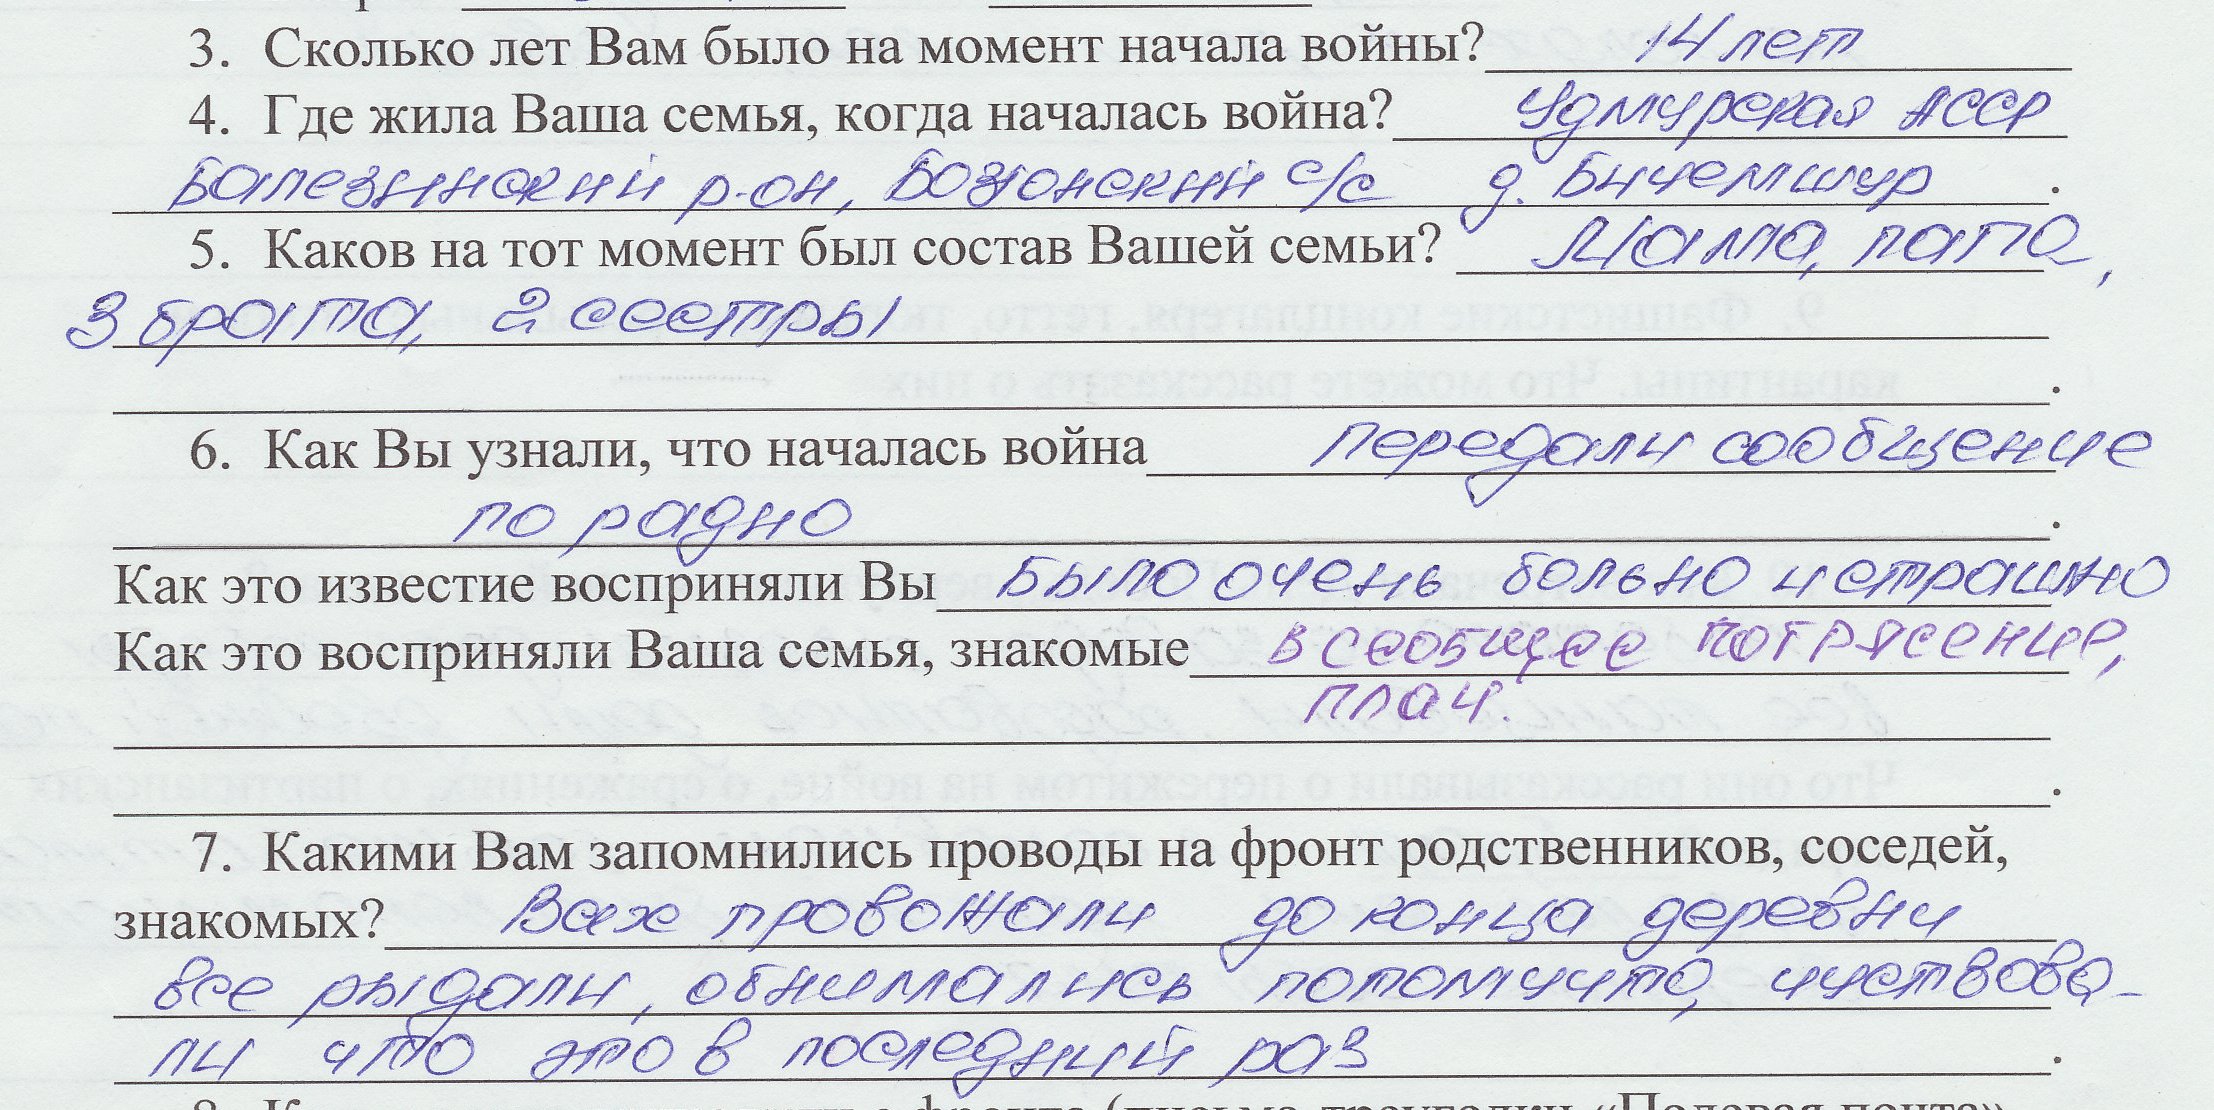 3. Сколько лет Вам было на момент начала войны? 14 лет
4. Где жила Ваша семья, когда началась война? Удмурская АССР
Балезинский р-он, Бозюнский с/с д. Бичемшур.
5. Каков на тот момент был состав Вашей семьи? Мама, папа,
3 брата, 2 сестры
.
6. Как Вы узнали, что началась война передали сообщение
по радио.
Как это известие восприняли Вы Было очень больно и страшно
Как это восприняли Ваша семья, знакомые всеобщее потрясение,
плач.
.
7. Какими Вам запомнились проводы на фронт родственников, соседей,
знакомых? Всех провожали до конца деревни
все рыдали, обнимались потомучто, чуствова-
ли что это в последний раз.